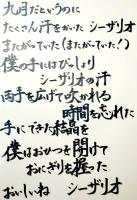 九月だというのに
たくさん汗をかいた シーザリオ
またがっていた(またがていた!)
僕の手にはびっしり
シーザリオの汗
両手を広げて吹かれる
時間を忘れた
手にできた結晶を
僕はおかっつを開けて
おにぎりを握った
おいしいね シーザリオ